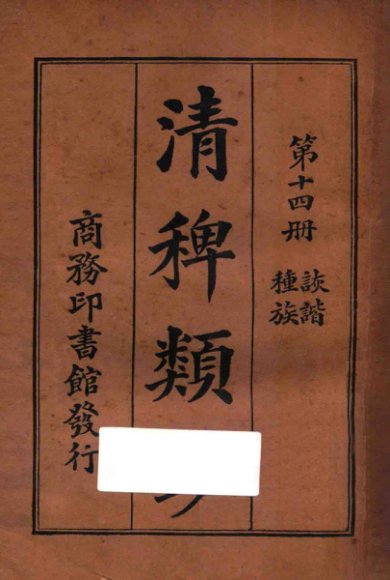 第十四册
詼諧
種族
清稗類
商務印書館發行